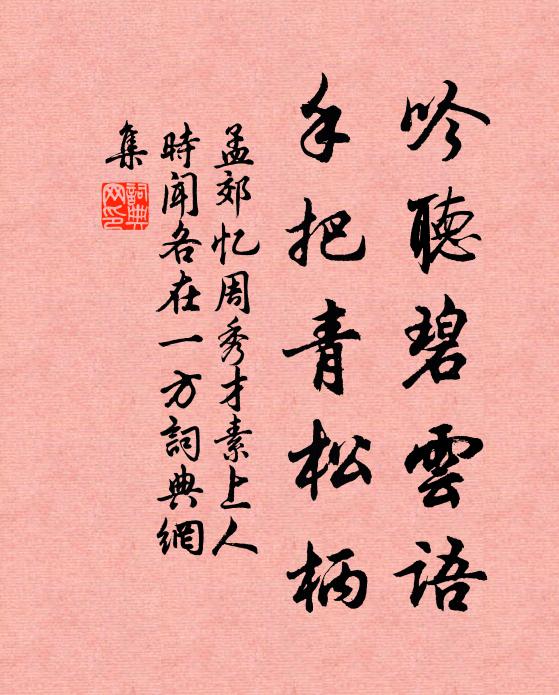 吟聽碧雲語
手把青松柄
孟郊忆周秀才素上人
時聞各在一方詞典網
集
詞典
网印